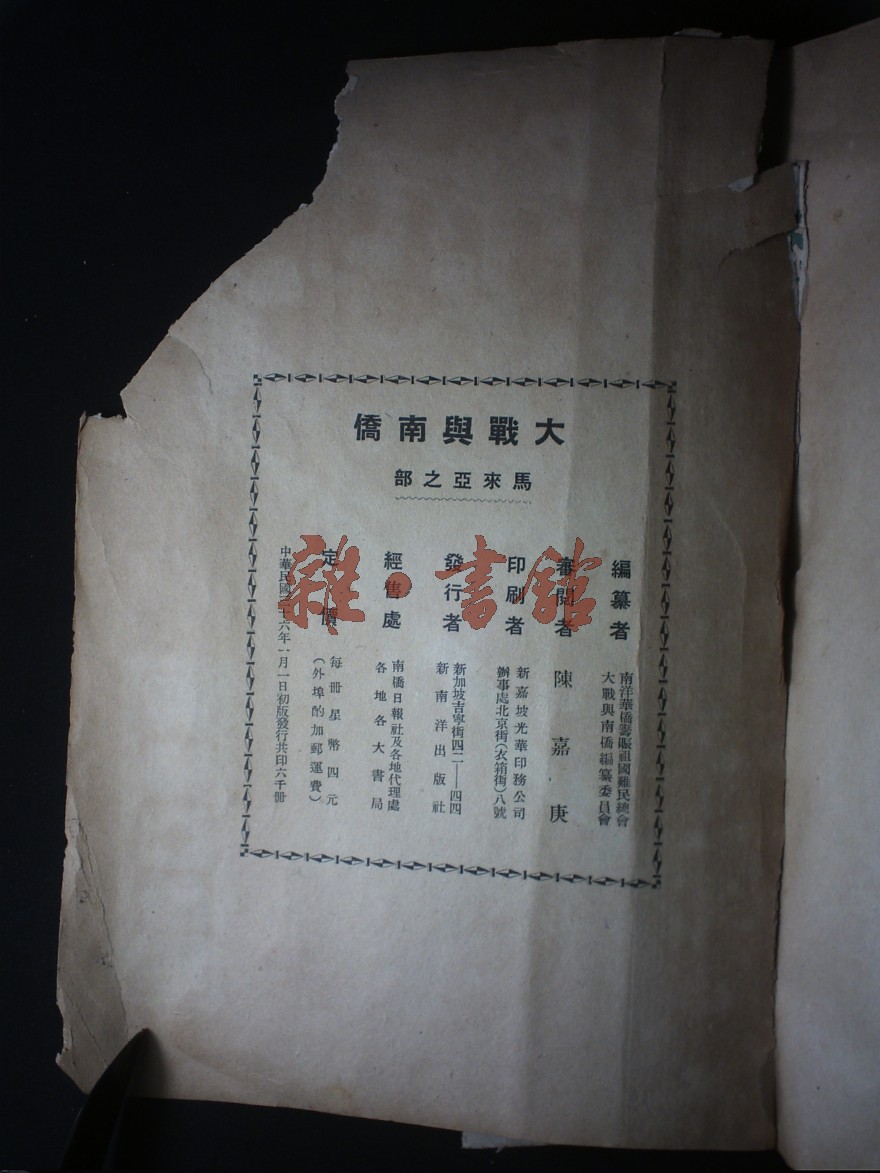 大戰與南僑
馬來亞之部
編纂者
南洋華僑籌賑祖國難民總會
大戰與南僑編纂委員會
審閱者
陳嘉庚
印刷者
新嘉坡光華印務公司
辦事處北京街(衣箱街)八號
發行者
新加坡吉寧街四二——四四
新南洋出版社
經售處
南僑日報社及各地代理處
各地各大書局
定價
每冊星幣四元
(外埠酌加郵運費)
中華民國三十六年一月一日初版發行共印六千冊
雜·書館